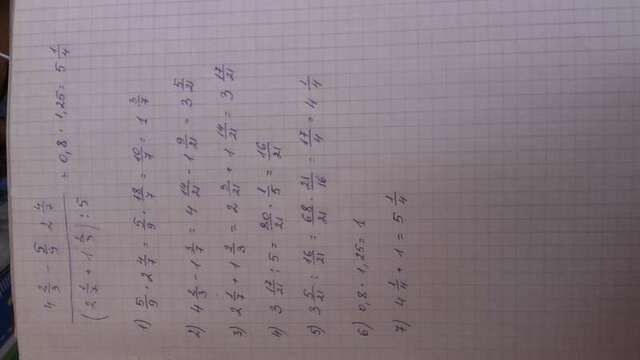 4 2/3 - 5/9 2 4/7
(2 1/7 + 1 2/3) : 5
+ 0,8 · 1,25 = 5 1/4
1) 5/9 · 2 4/7 = 5/9 · 18/7 = 10/7 = 1 3/7
2) 4 2/3 - 1 3/7 = 4 14/21 - 1 9/21 = 3 5/21
3) 2 1/7 + 1 2/3 = 2 3/21 + 1 14/21 = 3 17/21
4) 3 17/21 : 5 = 80/21 · 1/5 = 16/21
5) 3 5/21 : 16/21 = 68/21 · 21/16 = 17/4 = 4 1/4
6) 0,8 · 1,25 = 1
7) 4 1/4 + 1 = 5 1/4